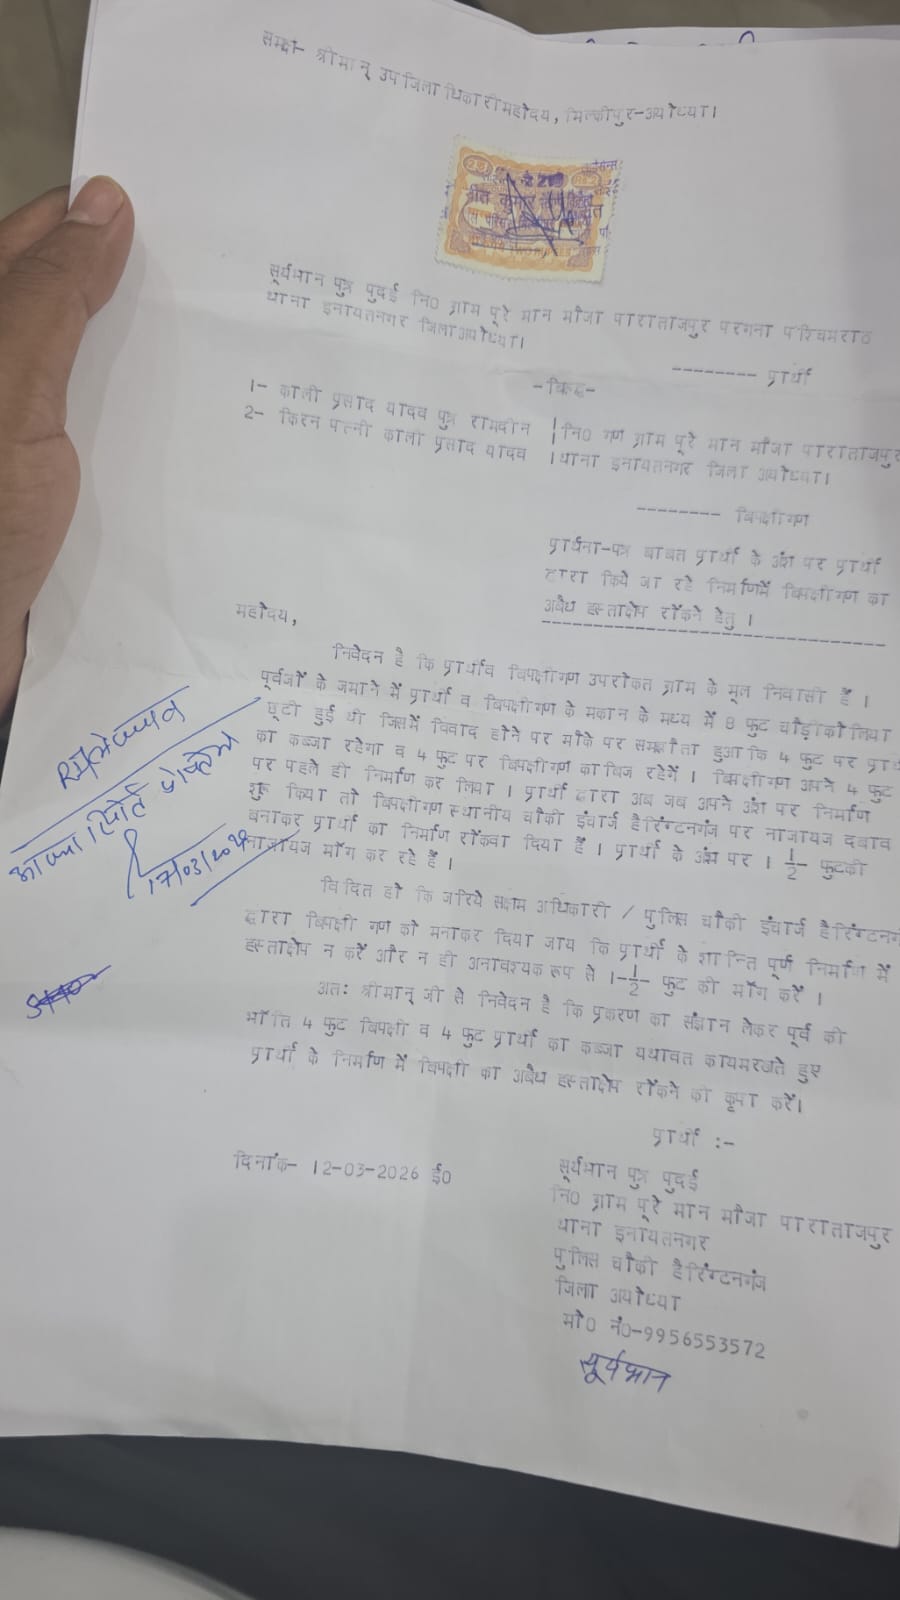 समक्ष- श्रीमान् उपजिलाधिकारी महोदय, मिल्कीपुर-अयोध्या।
सूर्यभान पुत्र पुदई नि0 ग्राम पूरे मान मौजा पाराताजपुर परगना पश्चिमराठ
थाना इनायतनगर जिला अयोध्या।
-------- प्रार्थी
-विरूद्ध-
1- काली प्रसाद यादव पुत्र रामदीन । नि0 गण ग्राम पूरे मान मौजा पाराताजपुर
2- किरन पत्नी काली प्रसाद यादव । थाना इनायतनगर जिला अयोध्या।
-------- विपक्षीगण
प्रार्थना-पत्र बाबत प्रार्थी के अंश पर प्रार्थी
द्वारा किये जा रहे निर्माण में विपक्षीगण का
अवैध हस्ताक्षेप रोंकने हेतु ।
महोदय,
निवेदन है कि प्रार्थी व विपक्षीगण उपरोक्त ग्राम के मूल निवासी हैं ।
पूर्वजों के जमाने में प्रार्थी व विपक्षीगण के मकान के मध्य में 8 फुट चौड़ी कोलिया
छूटी हुई थी जिसमें विवाद होने पर मौके पर समझौता हुआ कि 4 फुट पर प्रार्थी
का कब्जा रहेगा व 4 फुट पर विपक्षीगण काबिज रहेगें । विपक्षीगण अपने 4 फुट
पर पहले ही निर्माण कर लिया । प्रार्थी द्वारा अब जब अपने अंश पर निर्माण
शुरू किया तो विपक्षीगण स्थानीय चौकी इंचार्ज हैरिंग्टनगंज पर नाजायज दबाव
बनाकर प्रार्थी का निर्माण रोंकवा दिया है । प्रार्थी के अंश पर 1 1/2 फुट की
नाजायज माँग कर रहे हैं ।
विदित हो कि जरिये सक्षम अधिकारी / पुलिस चौकी इंचार्ज हैरिंग्टनगंज
द्वारा विपक्षी गण को मना कर दिया जाय कि प्रार्थी के शान्ति पूर्ण निर्माण में
हस्ताक्षेप न करें और न ही अनावश्यक रूप से 1-1/2 फुट की माँग करें ।
अतः श्रीमान् जी से निवेदन है कि प्रकरण का संज्ञान लेकर पूर्व की
भाँति 4 फुट विपक्षी व 4 फुट प्रार्थी का कब्जा यथावत कायम रखते हुए
प्रार्थी के निर्माण में विपक्षी का अवैध हस्ताक्षेप रोंकने की कृपा करें।
प्रार्थी :-
दिनांक- 12-03-2026 ई0
सूर्यभान पुत्र पुदई
नि0 ग्राम पूरे मान मौजा पाराताजपुर
थाना इनायतनगर
पुलिस चौकी हैरिंग्टनगंज
जिला अयोध्या
मो0 नं0-9956553572
सूर्यभान